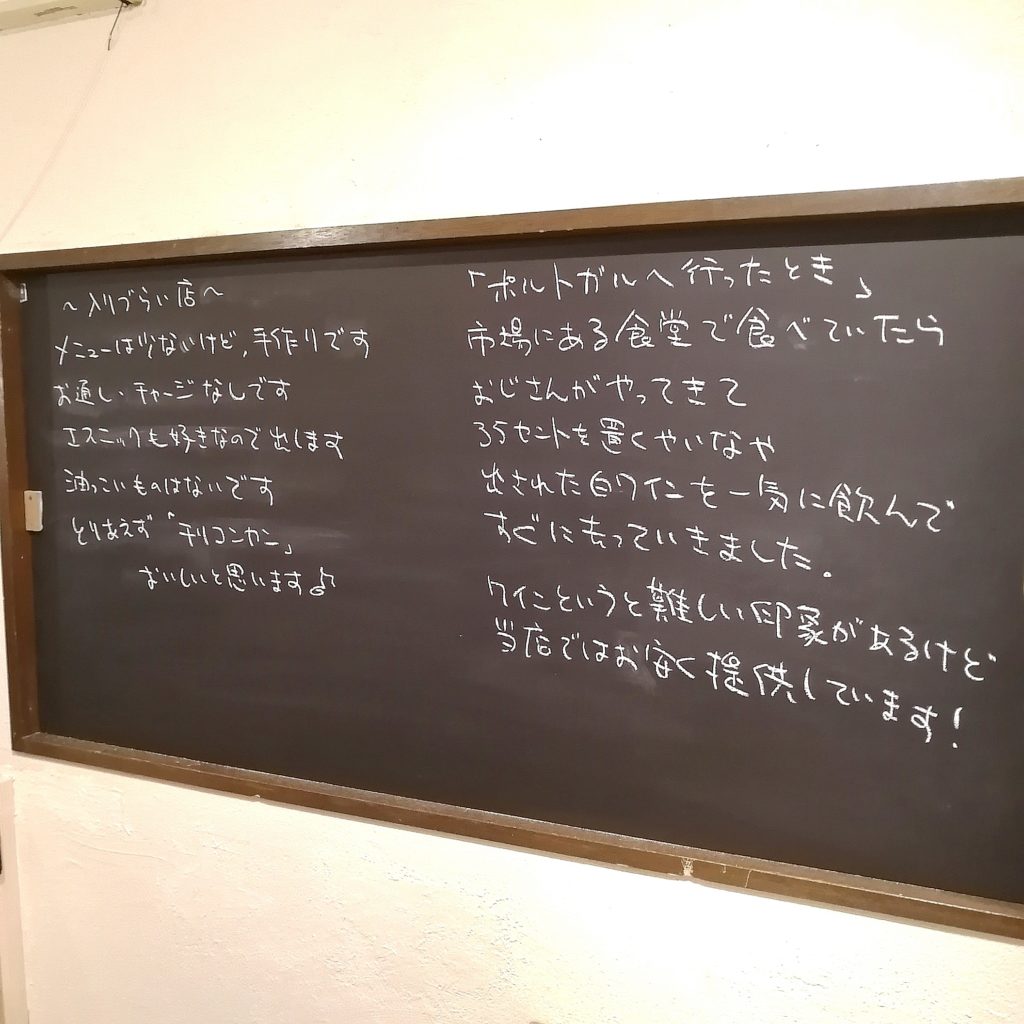 ～入りづらい店～
メニューは少ないけど、手作りです
お通し・チャージなしです
エスニックも好きなので出します
油っこいものはないです
とりあえず「チリコンカン」
おいしいと思います♪
「ポルトガルへ行ったとき」
市場にある食堂で食べていたら
おじさんがやってきて
35セントを置くやいなや
出された白ワインを一気に飲んで
すぐに去っていきました。
ワインというと難しい印象があるけど
当店ではお安く提供しています！